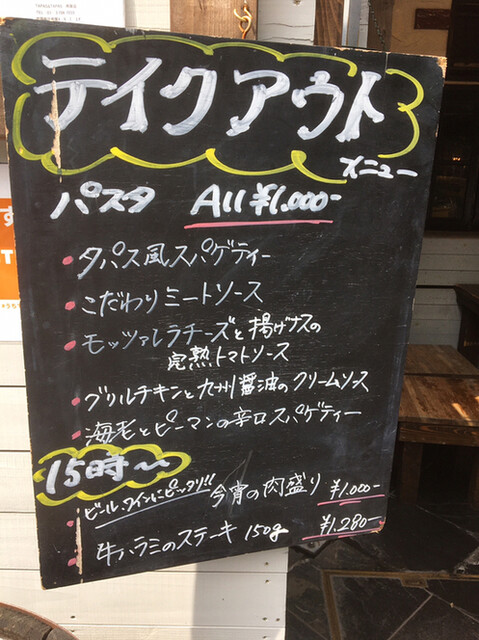 テイクアウト
メニュー
パスタ All ¥1.000-
・タパス風スパゲティー
・こだわりミートソース
・モッツァレラチーズと揚げナスの
完熟トマトソース
・グリルチキンと九州醤油のクリームソース
・海老とピーマンの辛口スパゲティー
15時〜
ビール、ワインにピッタリ!!
・今宵の肉盛り ¥1.000-
・牛ハラミのステーキ 150g ¥1.280-